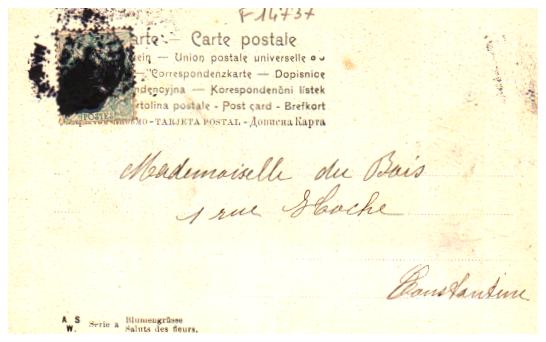 F 14737
arte — Carte postale
ein — Union postale universelle
Correspondenzkarte — Dopisnice
ndencyjna — Korespondenční lístek
rtolina postale - Post card - Brefkort
TARJETA POSTAL - Дописна Карта
POSTES
Mademoiselle du Bois
1 rue Hoche
Constantine
A S
W.
Serie a
Blumengrüsse
Saluts des fleurs.